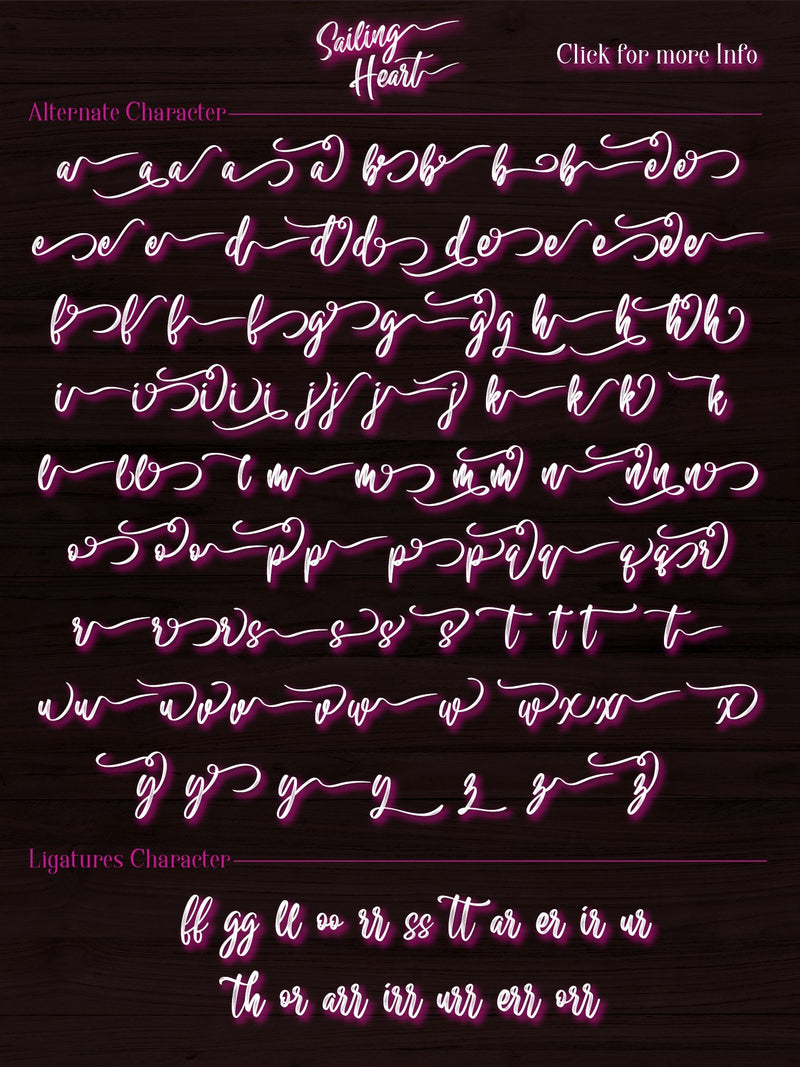 Sailing
Heart
Click for more Info
Alternate Character
a a a a a b b b b c c
c c c d d d d e e e e e
f f f f g g g g h h h h
i i i i i j j j j k k k k
l l l l m m m m n n n n
o o o p p p p q q q q r
r r r s s s s t t t t
u u u v v v w w w x x x
y y y y z z z
Ligatures Character
ff gg ll oo rr ss tt ar er ir ur
th or arr irr urr err orr